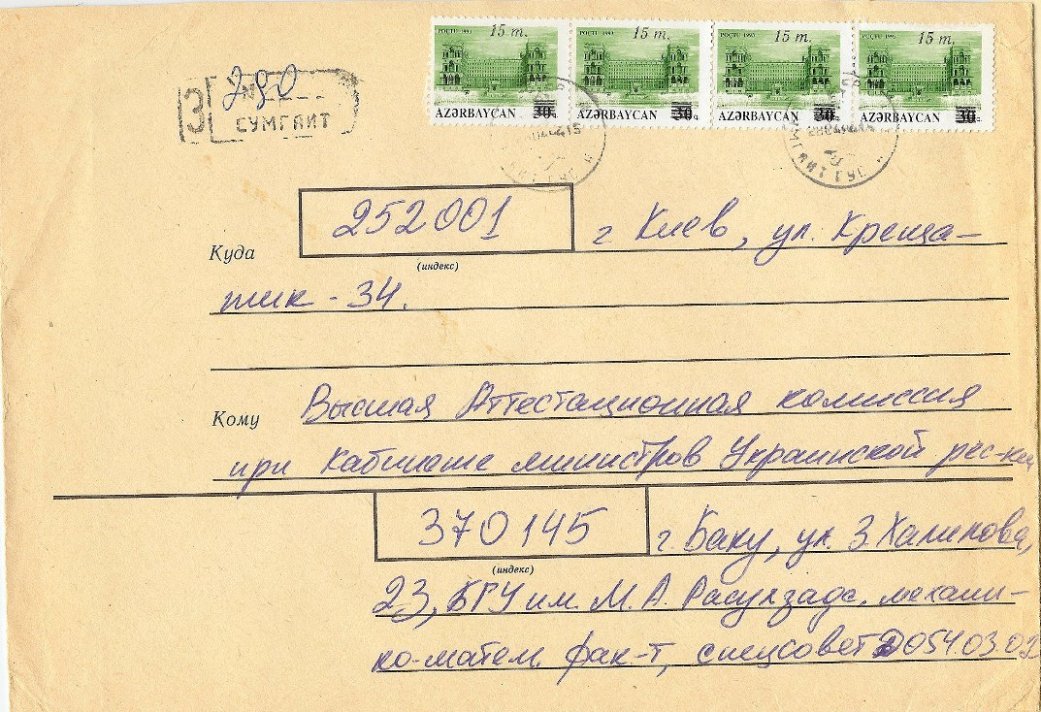 POÇTU 1993 15 m. POÇTU 1993 15 m. POÇTU 1993 15 m. POÇTU 1993 15 m.
AZƏRBAYCAN 30 AZƏRBAYCAN 30 AZƏRBAYCAN 30 AZƏRBAYCAN 30
З 790
СУМГАИТ
Куда 252001 г Киев, ул. Креща-
(индекс)
тик - 34.
Кому Высшая Аттестационная комиссия
при Кабинете министров Украинской рес-ки
370145 г. Баку, ул. З. Халилова,
(индекс)
23, БГУ им. М. А. Расулзаде, механи-
ко-матем. фак-т, спецсовет Д 054.03.02